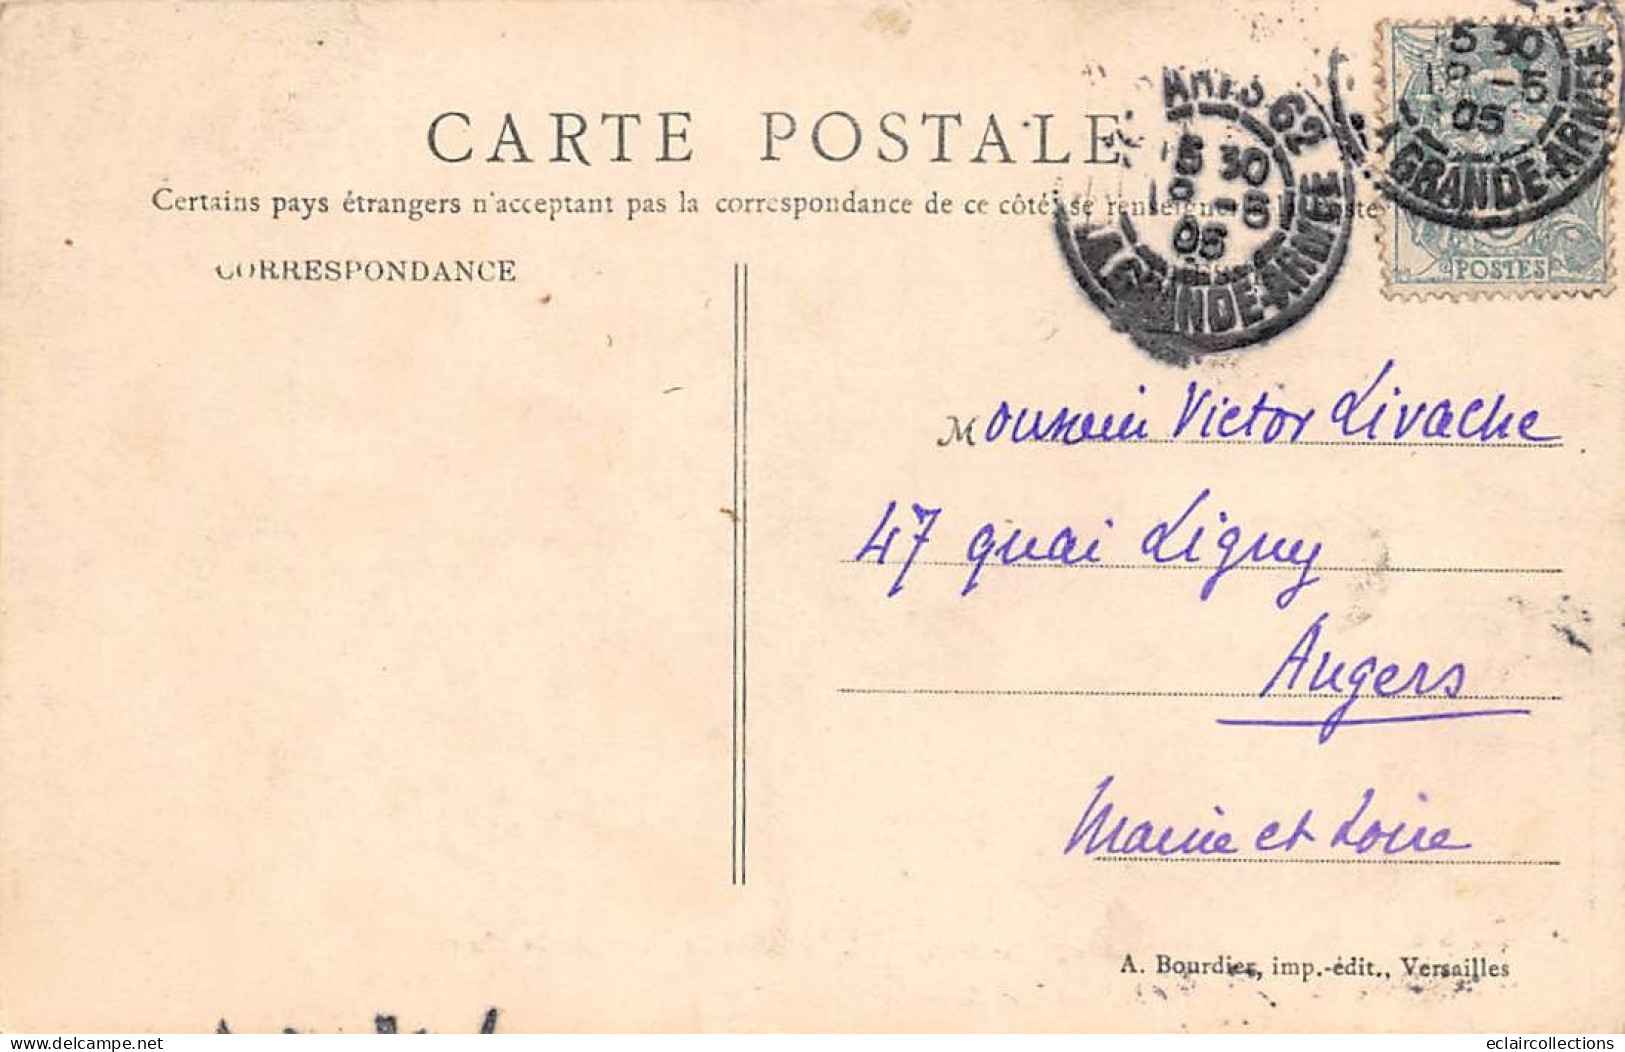 CARTE POSTALE
Certains pays étrangers n'acceptent pas la correspondance de ce côté, se
CORRESPONDANCE
62
5 30
-5
05
GRANDE-ARMÉE
5 30
-5
05
GRANDE-ARMÉE
POSTES
Monsieur Victor Livache
47 quai Ligny
Angers
Maine et Loire
A. Bourdier, imp.-édit., Versailles
eclaircollections